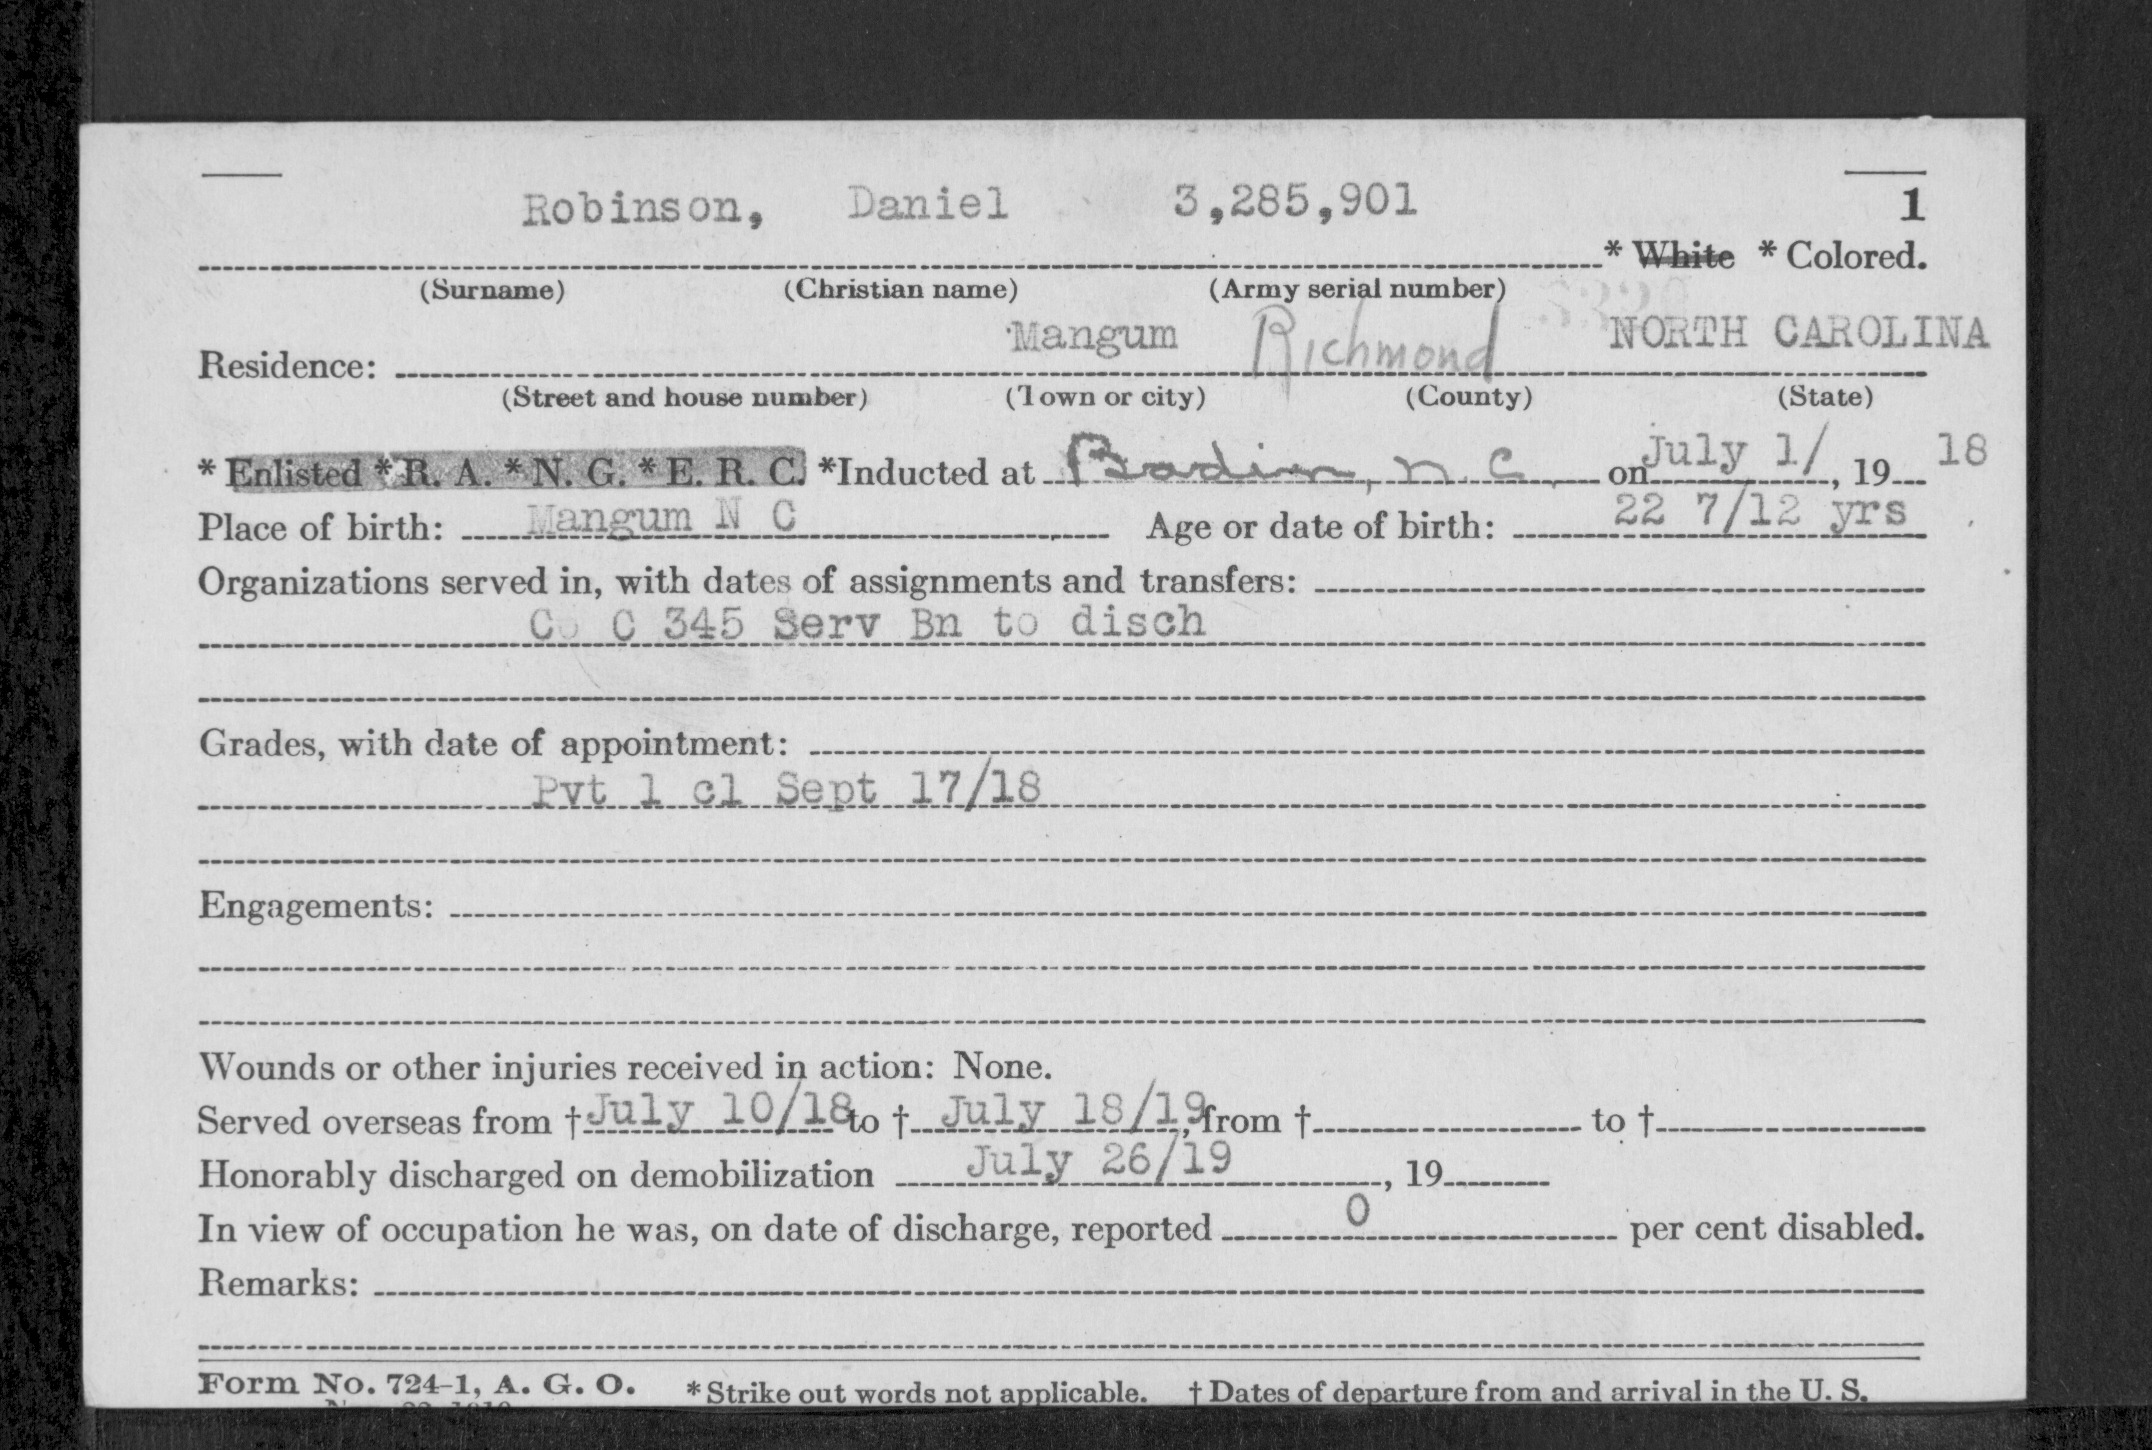 Robinson, Daniel 3,285,901 1
* White * Colored.
(Surname) (Christian name) (Army serial number)
Mangum Richmond NORTH CAROLINA
Residence:
(Street and house number) (Town or city) (County) (State)
* Enlisted * R. A. * N. G. * E. R. C. *Inducted at Badin, N. C. on July 1/, 19 18
Place of birth: Mangum N C Age or date of birth: 22 7/12 yrs
Organizations served in, with dates of assignments and transfers:
Co C 345 Serv Bn to disch
Grades, with date of appointment:
Pvt 1 cl Sept 17/18
Engagements:
Wounds or other injuries received in action: None.
Served overseas from † July 10/18 to † July 18/19, from † to †
Honorably discharged on demobilization July 26/19, 19
In view of occupation he was, on date of discharge, reported 0 per cent disabled.
Remarks:
Form No. 724-1, A. G. O. * Strike out words not applicable. † Dates of departure from and arrival in the U. S.